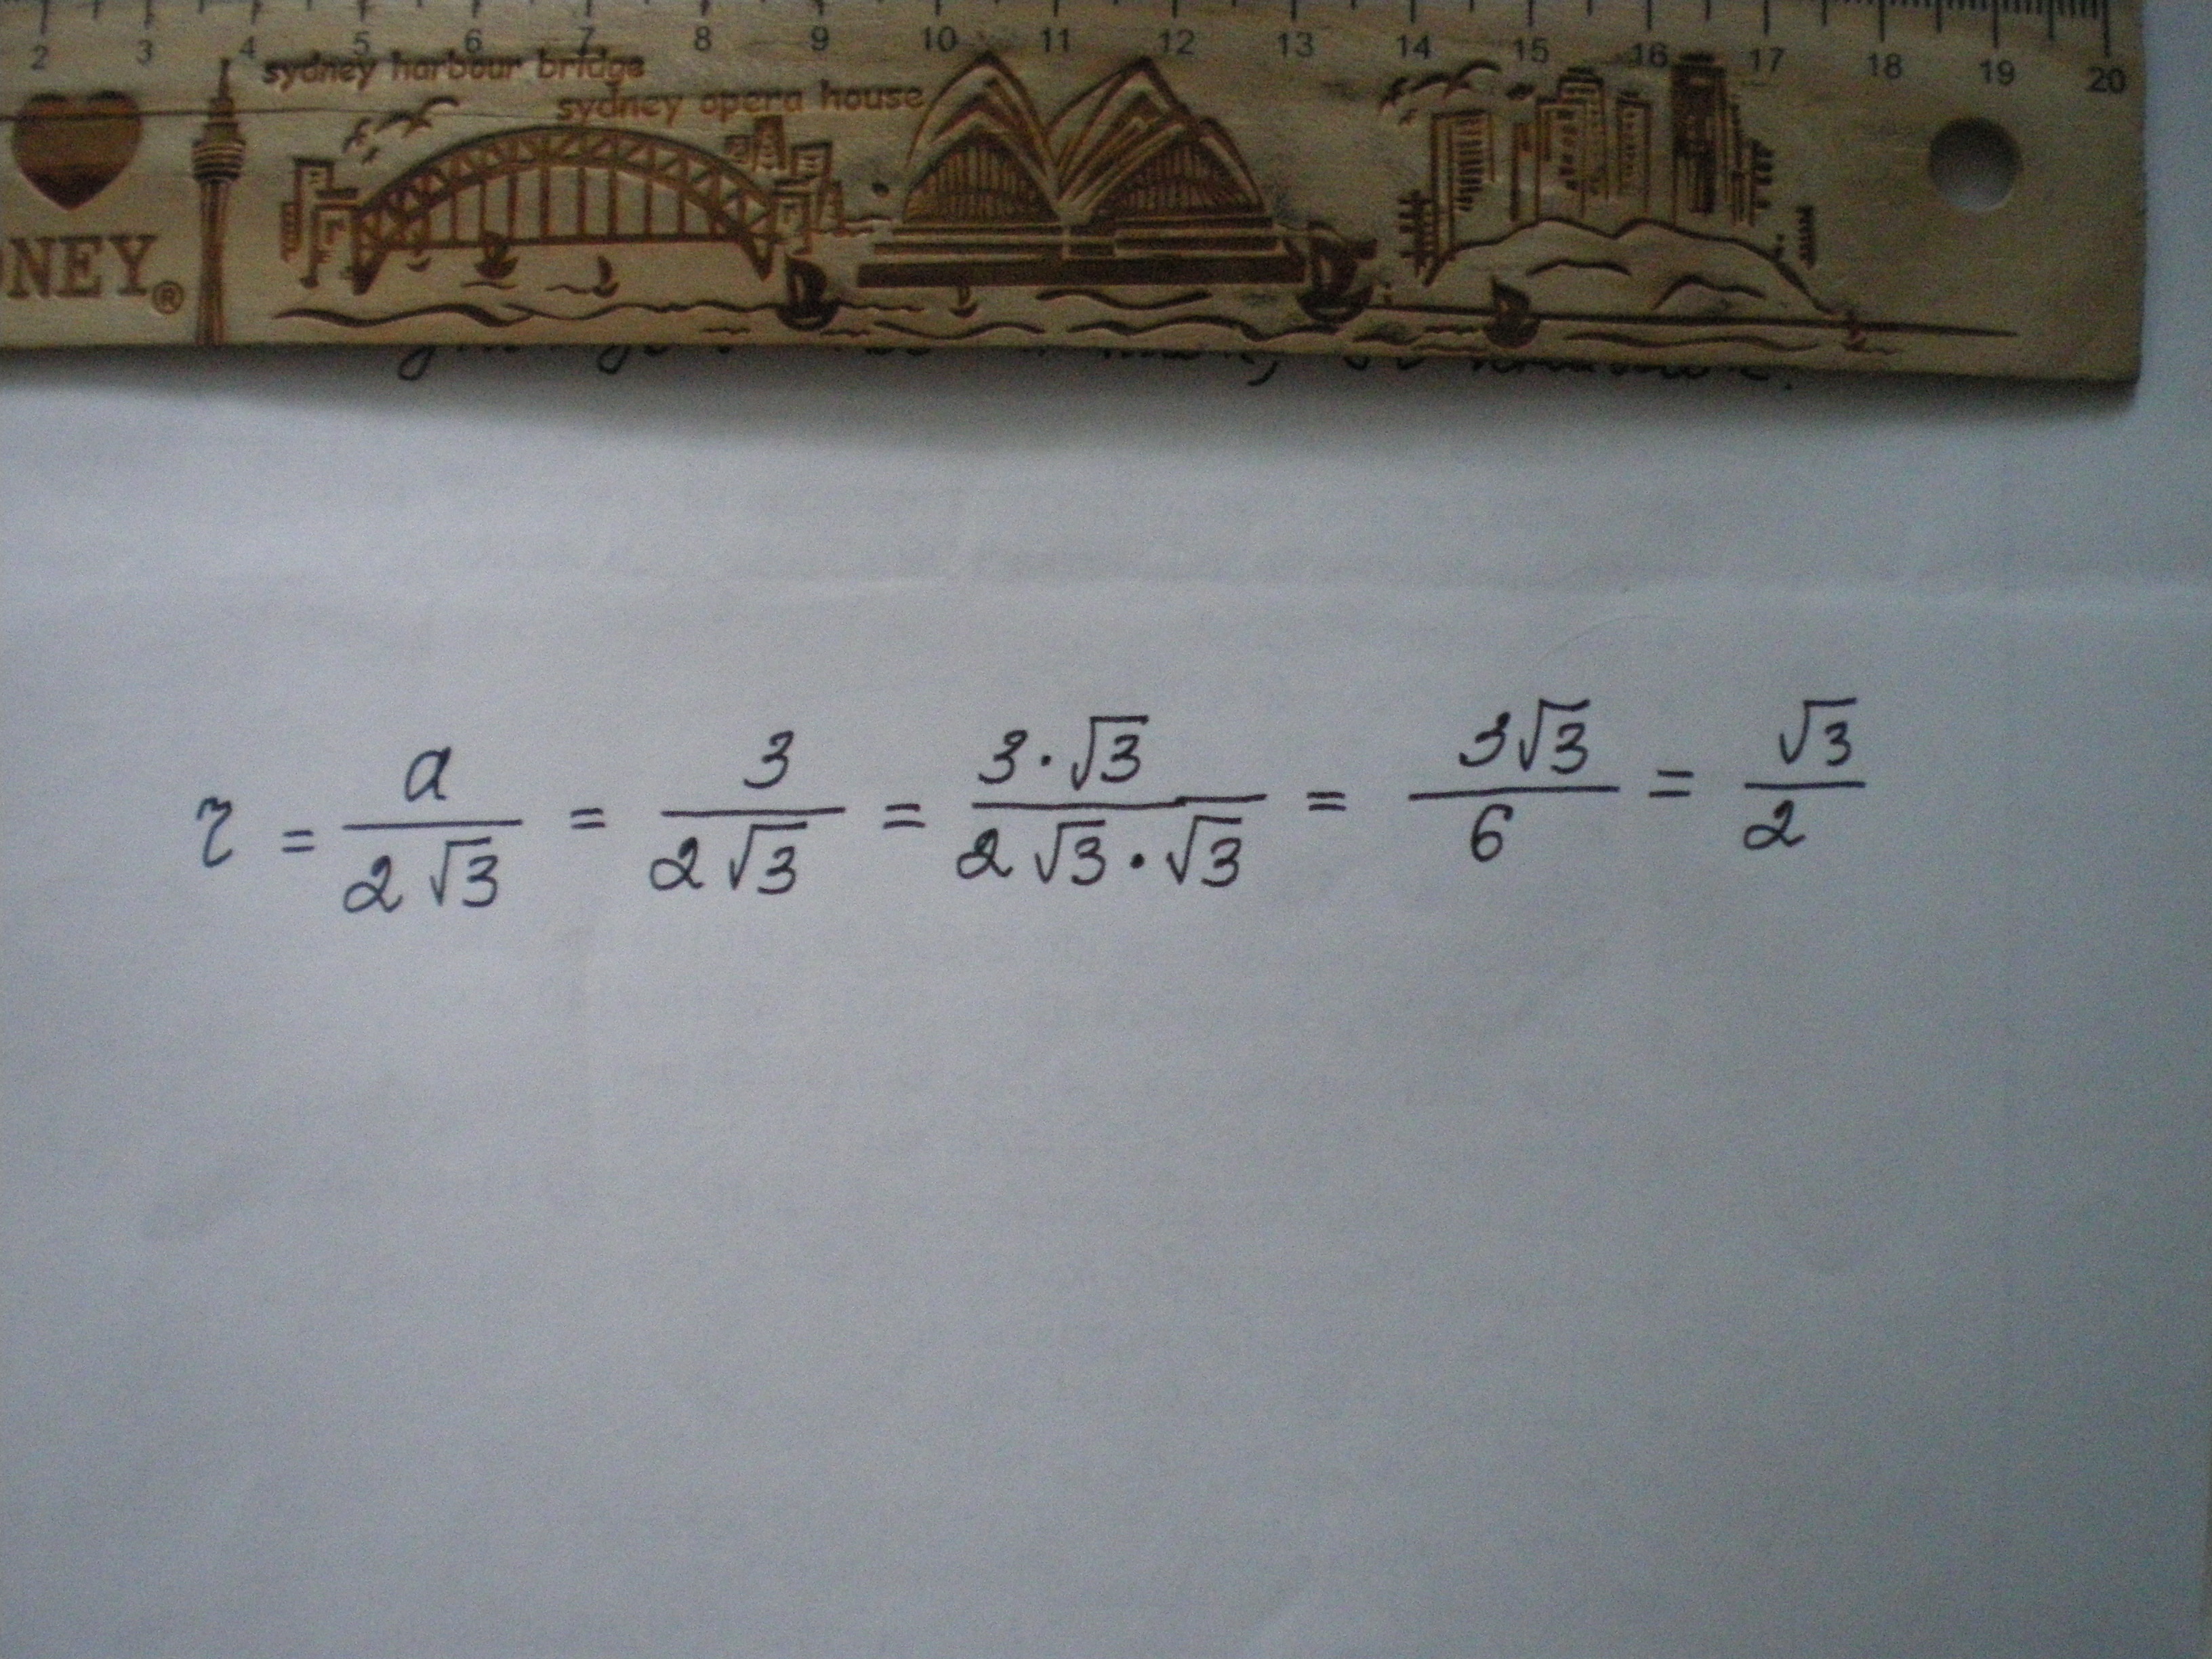 2 3 4 5 6 7 8 9 10 11 12 13 14 15 16 17 18 19 20
sydney harbour bridge
sydney opera house
NEY®
r = a/(2√3) = 3/(2√3) = (3·√3)/(2√3·√3) = 3√3/6 = √3/2